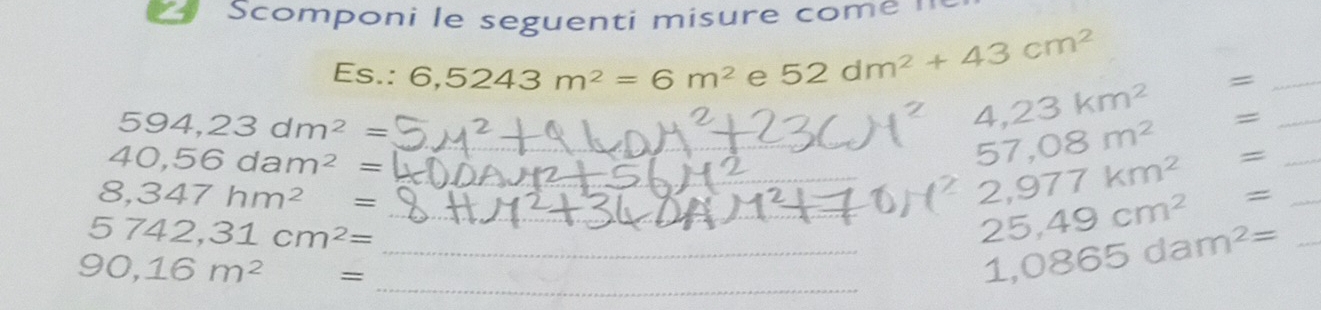 2 Scomponi le seguenti misure come
Es.: 6,5243 m² = 6 m² e 52 dm² + 43 cm²
594,23 dm² = 5M²+94DM²+23CM²
40,56 dam² = 40DAM²+56M²
8,347 hm² = 8HM²+34DAM²+70M²
5 742,31 cm²=
90,16 m² =
4,23 km² =
57,08 m² =
2,977 km² =
25,49 cm² =
1,0865 dam²=